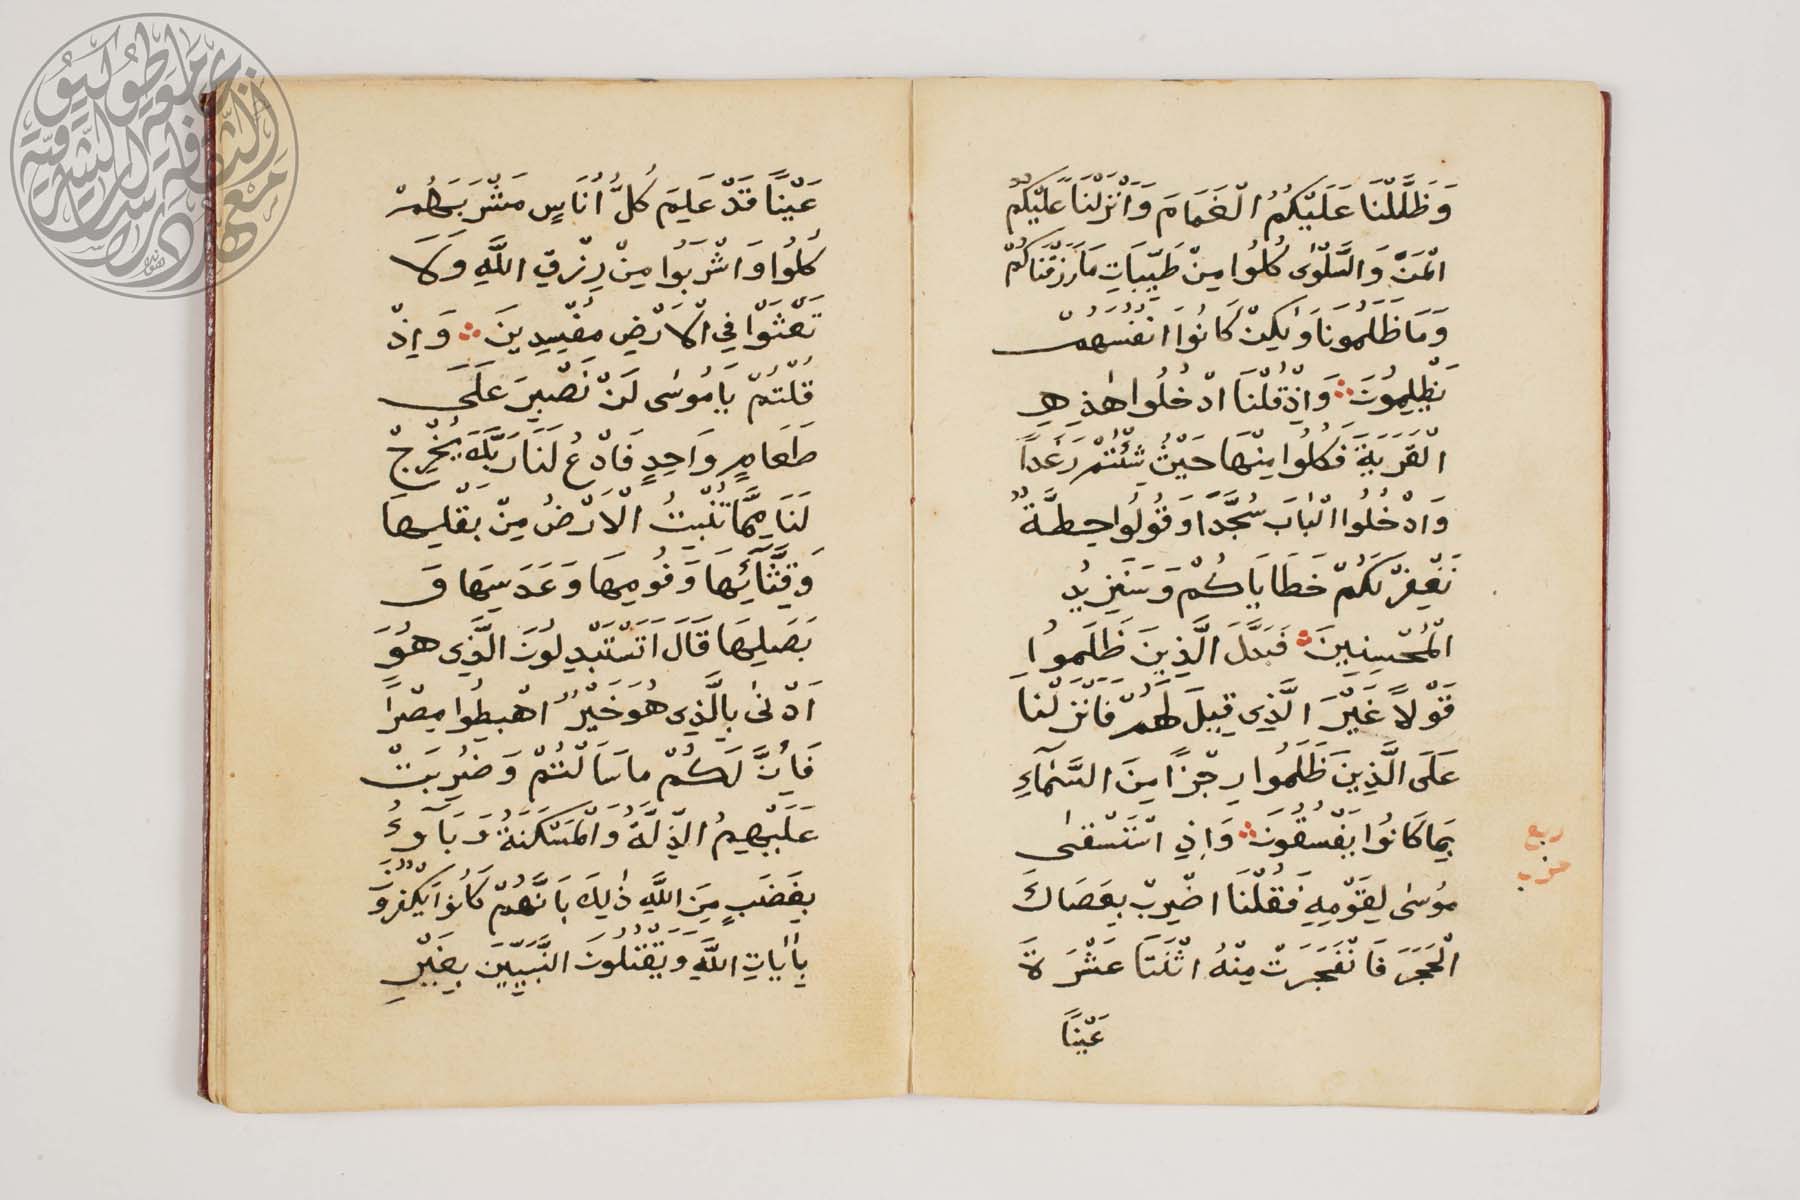 وَظَلَّلْنَا عَلَيْكُمُ الْغَمَامَ وَاَنْزَلْنَا عَلَيْكُمُ
الْمَنَّ وَالسَّلْوٰى كُلُوا مِنْ طَيِّبَاتِ مَا رَزَقْنَاكُمْ
وَمَا ظَلَمُونَا وَلٰكِنْ كَانُوا اَنْفُسَهُمْ
يَظْلِمُونَ وَاِذْ قُلْنَا ادْخُلُوا هٰذِهِ
الْقَرْيَةَ فَكُلُوا مِنْهَا حَيْثُ شِئْتُمْ رَغَدًا
وَادْخُلُوا الْبَابَ سُجَّدًا وَقُولُوا حِطَّةٌ
نَغْفِرْ لَكُمْ خَطَايَاكُمْ وَسَنَزِيدُ
الْمُحْسِنِينَ فَبَدَّلَ الَّذِينَ ظَلَمُوا
قَوْلًا غَيْرَ الَّذِي قِيلَ لَهُمْ فَاَنْزَلْنَا
عَلَى الَّذِينَ ظَلَمُوا رِجْزًا مِنَ السَّمَآءِ
بِمَا كَانُوا يَفْسُقُونَ وَاِذِ اسْتَسْقٰى
مُوسٰى لِقَوْمِهِ فَقُلْنَا اضْرِبْ بِعَصَاكَ
الْحَجَرَ فَانْفَجَرَتْ مِنْهُ اثْنَتَا عَشْرَةَ
عَيْنًا
ربع
حزب
عَيْنًا قَدْ عَلِمَ كُلُّ اُنَاسٍ مَشْرَبَهُمْ
كُلُوا وَاشْرَبُوا مِنْ رِزْقِ اللَّهِ وَلَا
تَعْثَوْا فِي الْاَرْضِ مُفْسِدِينَ وَاِذْ
قُلْتُمْ يَا مُوسٰى لَنْ نَصْبِرَ عَلَى
طَعَامٍ وَاحِدٍ فَادْعُ لَنَا رَبَّكَ يُخْرِجْ
لَنَا مِمَّا تُنْبِتُ الْاَرْضُ مِنْ بَقْلِهَا
وَقِثَّآئِهَا وَفُومِهَا وَعَدَسِهَا وَ
بَصَلِهَا قَالَ اَتَسْتَبْدِلُونَ الَّذِي هُوَ
اَدْنٰى بِالَّذِي هُوَ خَيْرٌ اهْبِطُوا مِصْرًا
فَاِنَّ لَكُمْ مَا سَاَلْتُمْ وَضُرِبَتْ
عَلَيْهِمُ الذِّلَّةُ وَالْمَسْكَنَةُ وَبَآؤُ
بِغَضَبٍ مِنَ اللَّهِ ذٰلِكَ بِاَنَّهُمْ كَانُوا يَكْفُرُونَ
بِاٰيَاتِ اللَّهِ وَيَقْتُلُونَ النَّبِيِّينَ بِغَيْرِ